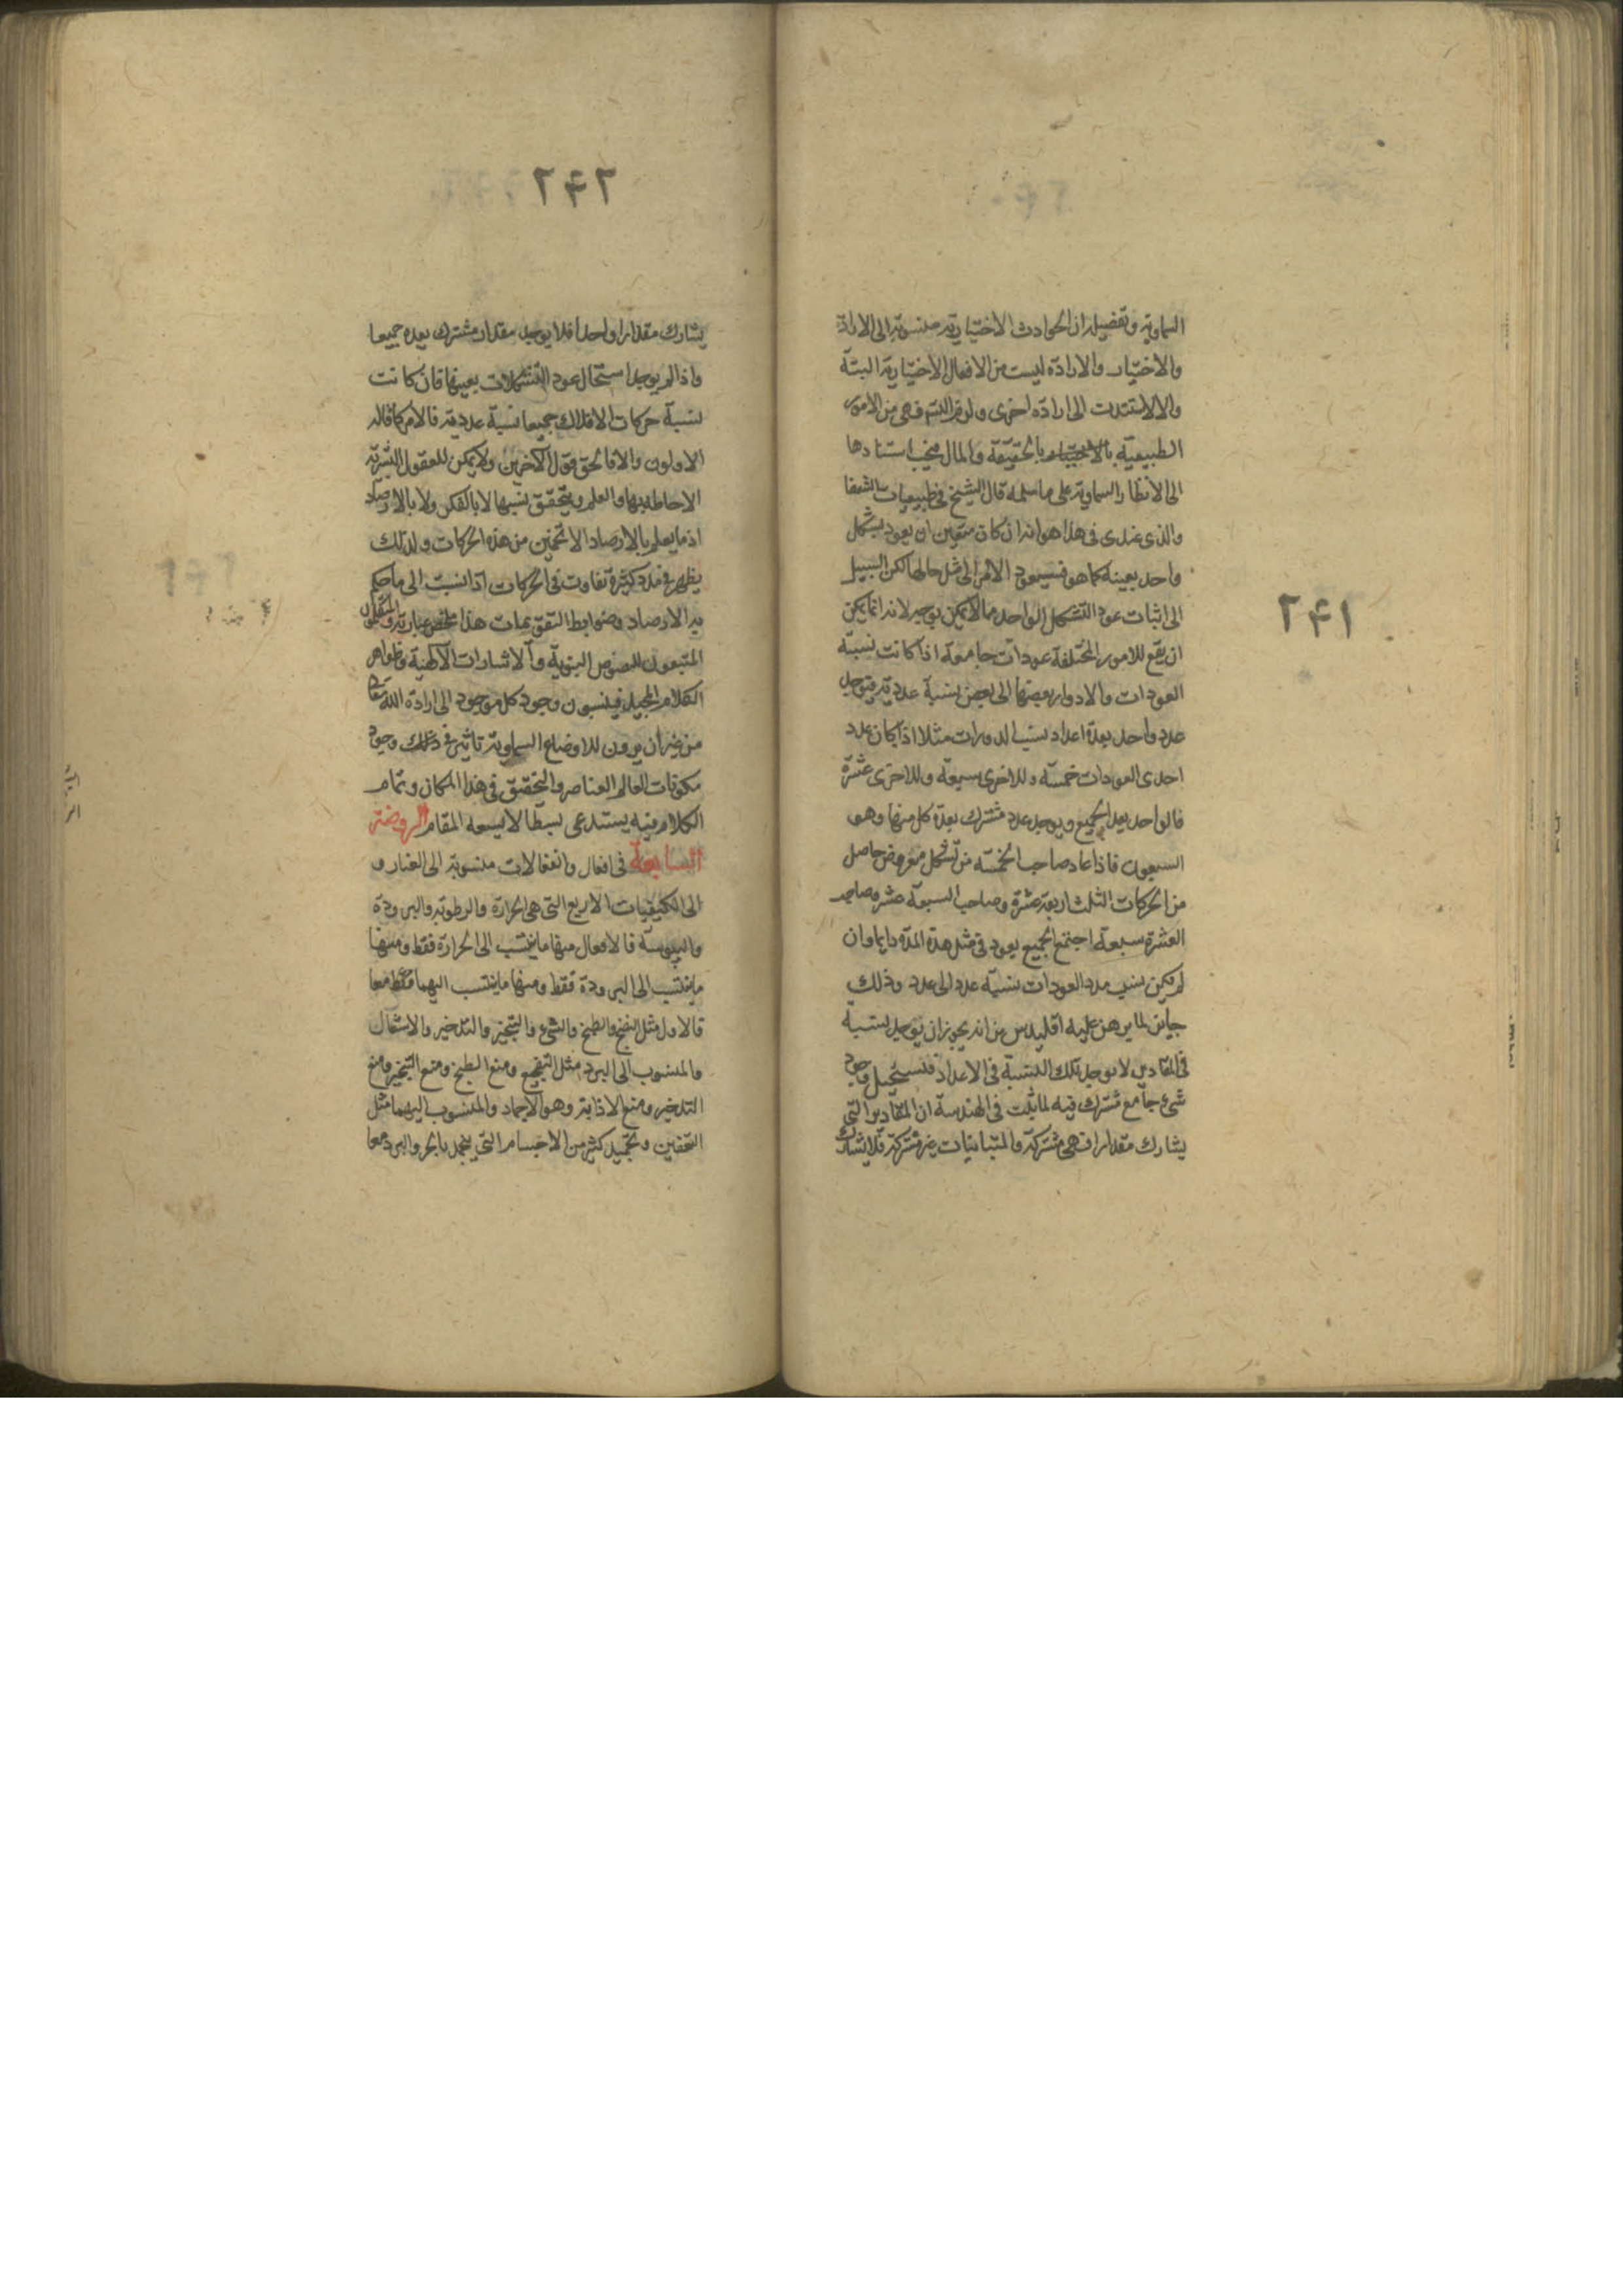 ٢۴١
السماوية وتفصيله ان الحوادث الاختيارية منسوبة الى الارادة
والاختيار والارادة ليست من الافعال الاختيارية البتة
والا لاستندت الى ارادة اخرى ولزم التس فهى من الامور
الطبيعية بالحقيقة والمال فيجب استنادها
الى الانظار السماوية على ما سلمه قال الشيخ فى طبيعيات الشفا
والذى عندى فى هذا هو انه ان كان متعين ان يعود بشكل
واحد بعينه كما هو فسيعود الامر الى مثل حالها لكن السبيل
الى اثبات عود التشكل الواحد مما لا يمكن بوجه لانه انما يمكن
ان يقع للامور المختلفة عودات جامعة اذا كانت نسبة
العودات والادوار بعضها الى بعض نسبة عددية فيوجد
عدد واحد بعدة اعداد نسب الدورات مثلا اذا كان عدد
احدى العودات خمسة وللاخرى سبعة وللاخرى عشرة
فالواحد يعد الجميع ويوجد عدد مشترك بعدة كل منها وهو
السبعون فاذا عاد صاحب الخمسة من تشكل مفروض حاصل
من الحركات الثلث اربعة عشرة وصاحب السبعة عشر وصاحب
العشرة سبعة اجتمع الجميع يعود فى مثل هذة المدة دايما وان
لم يكن نسب مدد العودات نسبة عدد الى عدد وذلك
جايز لما برهن عليه اقليدس من انه يجوز ان يوجد لنسبة
فى المقادير لا يوجد تلك النسبة فى الاعداد فيستحيل وجود
شىء جامع مشترك فيه لما ثبت فى الهندسة ان المقادير التى
يشارك مقدارا فهى مشتركة والمتباينات غير مشتركة فلا يشارك
٢۴٢
يشارك مقدارا واحدا فلا يوجد مقدار مشترك يعده جميعا
واذا لم يوجد استحال عود التشكلات بعينها فان كانت
نسبة حركات الافلاك جميعا نسبة عددية فالامر كما قاله
الاولون والا فالحق قول الآخرين ولا يمكن للعقول البشرية
الاحاطة بها والعلم بتحقق نسبها لا بالفكر ولا بالارصاد
اذ ما يعلم بالارصاد الا تخمين من هذه الحركات ولذلك
يظهر فى مدد كثيرة تفاوت فى الحركات اذا نسبت الى ما حكم
به الارصاد وضوابط التقويمات هذا ملخص عبارته والمتكلمون
المتبعون للنصوص النبوية والاشارات الالهية وظواهر
الكلام المجيد فينسبون وجود كل موجود الى ارادة الله تعالى
من غير ان يرون للاوضاع السماوية تاثير فى ذلك وجود
مكونات العالم العناصر والتحقيق فى هذا المكان وتمام
الكلام فيه يستدعى بسطا لا يسعه المقام الروضة
السابعة فى افعال وانفعالات منسوبة الى العناصر و
الى الكيفيات الاربع التى هى الحرارة والرطوبة والبرودة
واليبوسة فالافعال منها ما ينتسب الى الحرارة فقط ومنها
ما ينتسب الى البرودة فقط ومنها ما ينتسب اليهما فقط معا
فالاول مثل النضج والطبخ والشىء والتبخير والتدخير والاشعال
والمنسوب الى البرد مثل التفجيج ومنع الطبخ ومنع التبخير ومنع
التدخير ومنع الاذابة وهو الاجماد والمنسوب اليهما مثل
التعفين وتجميد كثير من الاجسام التى ينجمد بالحر والبرد معا